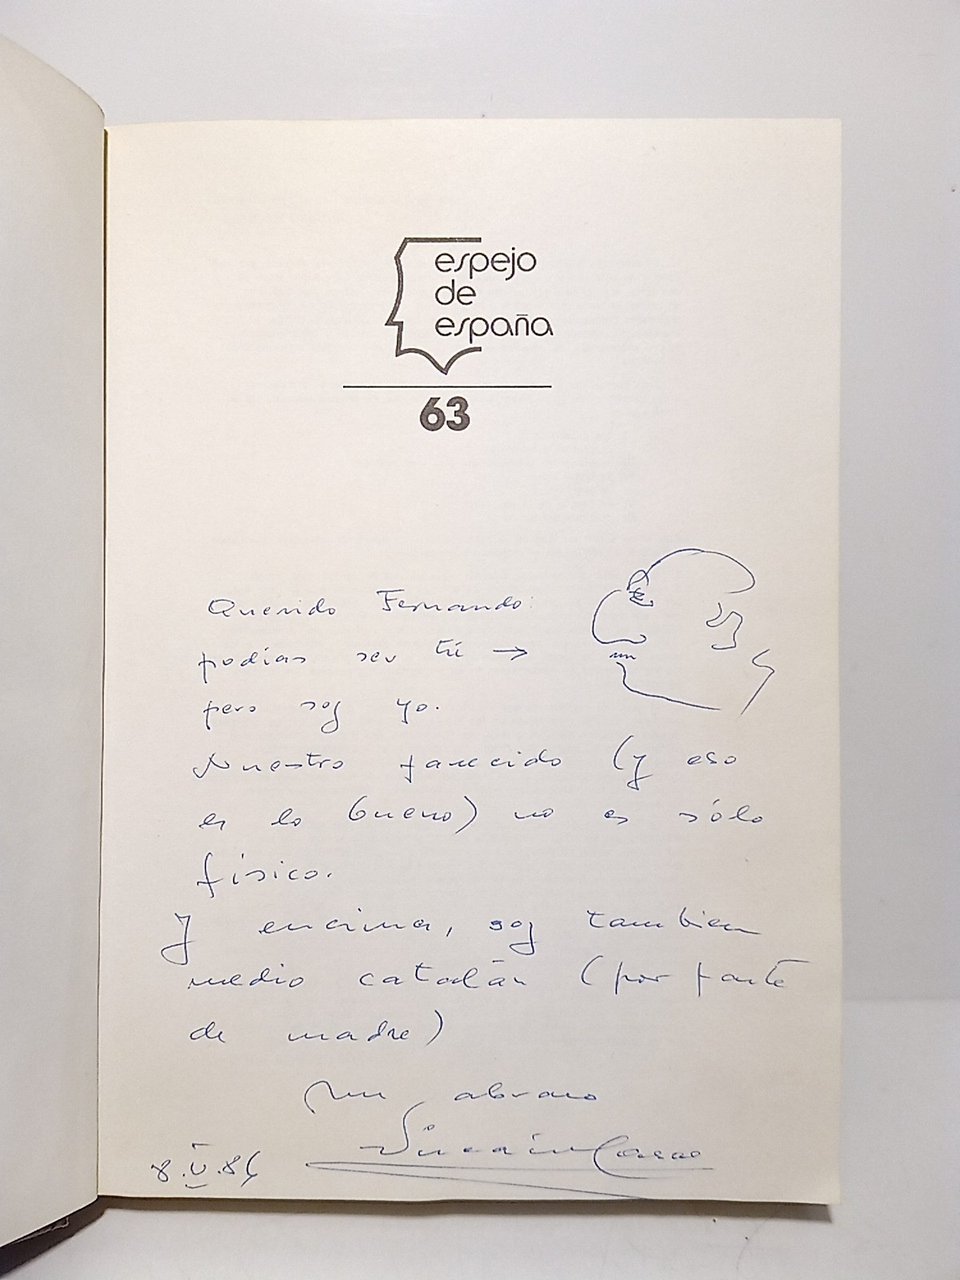 espejo
de
españa
63
Querido Fernando:
podías ser tú →
pero soy yo.
Nuestro parecido (y eso
es lo bueno) no es sólo
físico.
Y encima, soy también
medio catalán (por parte
de madre)
Un abrazo
8.V.86